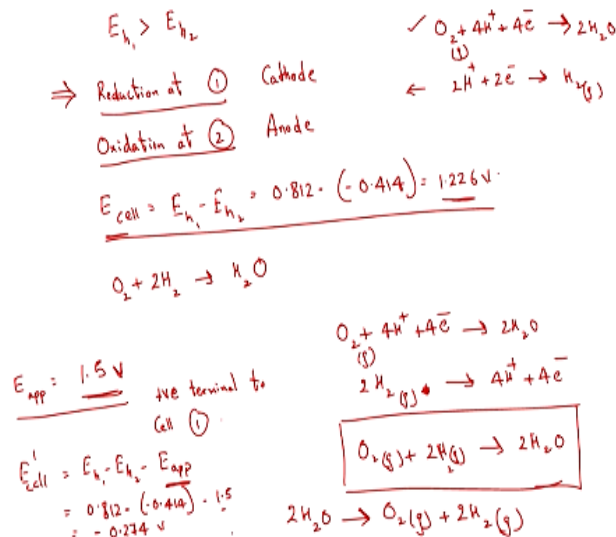 E_h₁ > E_h₂
✓ O₂ + 4H⁺ + 4e̅ → 2H₂O
(g)
⇒ Reduction at ① Cathode
← 2H⁺ + 2e̅ → H₂(g)
Oxidation at ② Anode
E_cell = E_h₁ - E_h₂ = 0.812 - (-0.414) = 1.226 V.
O₂ + 2H₂ → H₂O
O₂ + 4H⁺ + 4e̅ → 2H₂O
(g)
2H₂(g) → 4H⁺ + 4e̅
E_app = 1.5 V
+ve terminal to
Cell ①
O₂(g) + 2H₂(g) → 2H₂O
E'_cell = E_h₁ - E_h₂ - E_app
= 0.812 - (-0.414) - 1.5
= -0.274 V
2H₂O → O₂(g) + 2H₂(g)